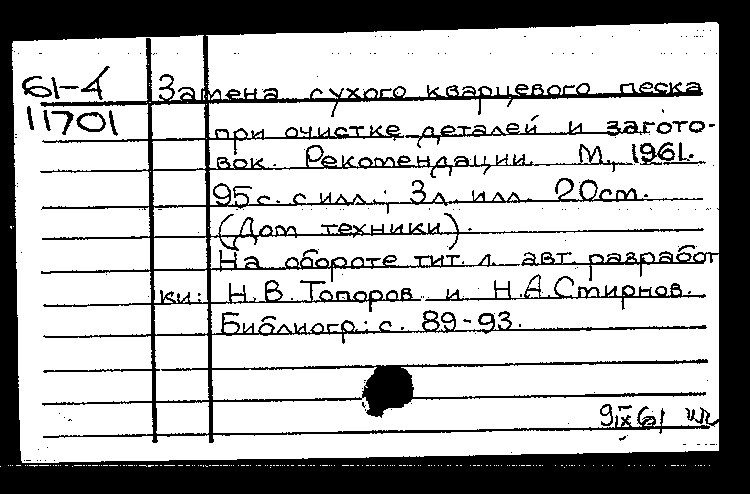 61-4 Замена сухого кварцевого песка
11701
при очистке деталей и загото-
вок. Рекомендации. М., 1961.
95 с. с илл.; 3 л. илл. 20 cm.
(Дом техники).
На обороте тит. л. авт. разработ
ки: Н.В. Топоров и Н.А. Смирнов.
Библиогр.: с. 89-93.
9 IX 61